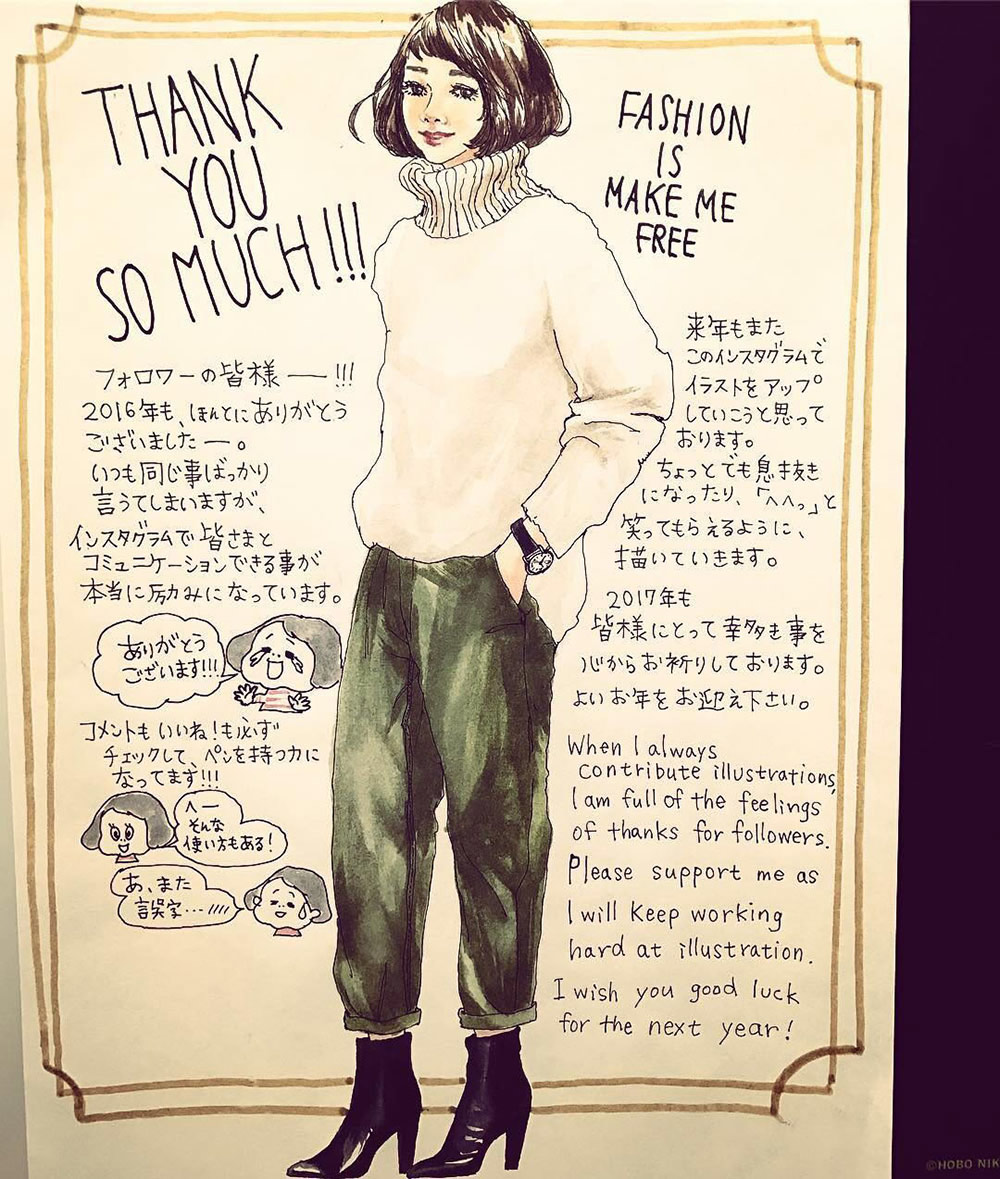 THANK
YOU
SO MUCH!!!
フォロワーの皆様ー!!!
2016年も、ほんとにありがとう
ございましたー。
いつも同じ事ばっかり
言うてしまいますが、
インスタグラムで皆さまと
コミュニケーションできる事が
本当に励みになっています。
ありがとう
ございます!!!
コメントもいいね!も必ず
チェックして、ペンを持つ力に
なってます!!!
へー
そんな
使い方もある!
あ、また
誤字…
FASHION
IS
MAKE ME
FREE
来年もまた
このインスタグラムで
イラストをアップ
していこうと思って
おります。
ちょっとでも息抜き
になったり、「へへっ」と
笑ってもらえるように、
描いていきます。
2017年も
皆様にとって幸多き事を
心からお祈りしております。
よいお年をお迎え下さい。
When I always
contribute illustrations,
I am full of the feelings
of thanks for followers.
Please support me as
I will keep working
hard at illustration.
I wish you good luck
for the next year!
©HOBO NIK